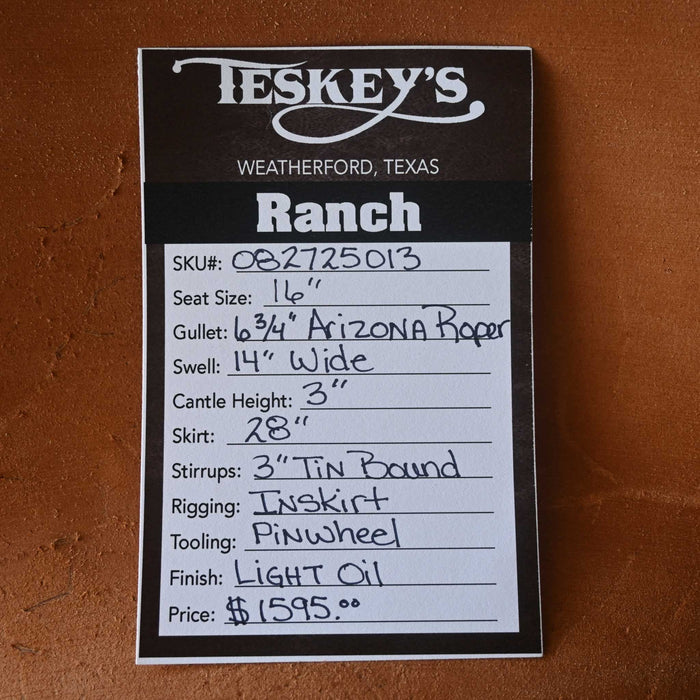 TESKEY'S
WEATHERFORD, TEXAS
Ranch
SKU#: 082725013
Seat Size: 16"
Gullet: 6 3/4" Arizona Roper
Swell: 14" Wide
Cantle Height: 3"
Skirt: 28"
Stirrups: 3" Tin Bound
Rigging: Inskirt
Tooling: Pinwheel
Finish: Light Oil
Price: $1595.00